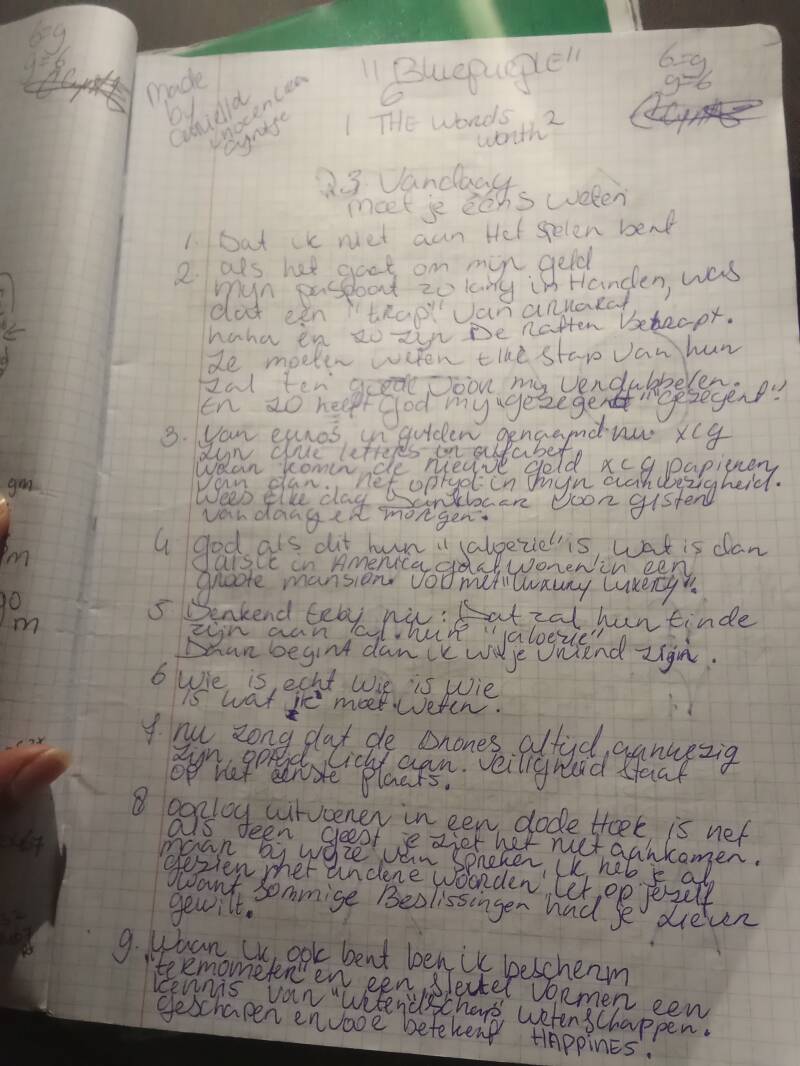 6=g
g=6
Made
by
"Bluepurple"
6
6=g
g=6
1 THE words 2
worth
23 Vandaag
moet je eens weten
1. Dat ik niet aan Het spelen bent
2. als het gaat om mijn geld
mijn paspoort zo lang in Handen, was
dat een "trap" van
haha en zo zijn De ratten betrapt.
ze moeten weten Elke stap van hun
zal ten goede voor my verdubbelen.
En zo heeft God my "gezegent" "gezegent".
3. Van euros in gulden genaamd nu xcg
zijn drie letters in alfabet,
waar komen de nieuwe geld xcg papieren
van dan. Het optyd in mijn aanwezigheid.
wees elke dag Dankbaar voor gisten
vandaag en morgen.
4 god als dit hun "jaloezie" is, wat is dan
als ik in America gaat wonen in een
groote mansion vol met "luxury luxery".
5 Denkend erby nu: Dat zal hun Einde
zijn aan al hun "jaloezie"
Daar begint dan ik wil je vriend zijn.
6 Wie is echt wie is wie
is wat ik moet weten.
7. nu zorg dat de Drones altijd aanwezig
zijn, optyd licht aan. veiligheid staat
op het eerste plaats.
8 oorlog uitvoeren in een dode Hoek, is net
als een geest je ziet het niet aankomen.
maar bij wyze van spreken, ik heb je al
gezien met andere woorden, let op jezelf
want sommige Beslissingen had je liever
gewilt.
9. Waar ik ook bent ben ik bescherm
"termometer" en een sleutel vormen een
kennis van "wetendschap" wetenschappen.
geschapen en betekent HAPPINES.
gm
m
go
m